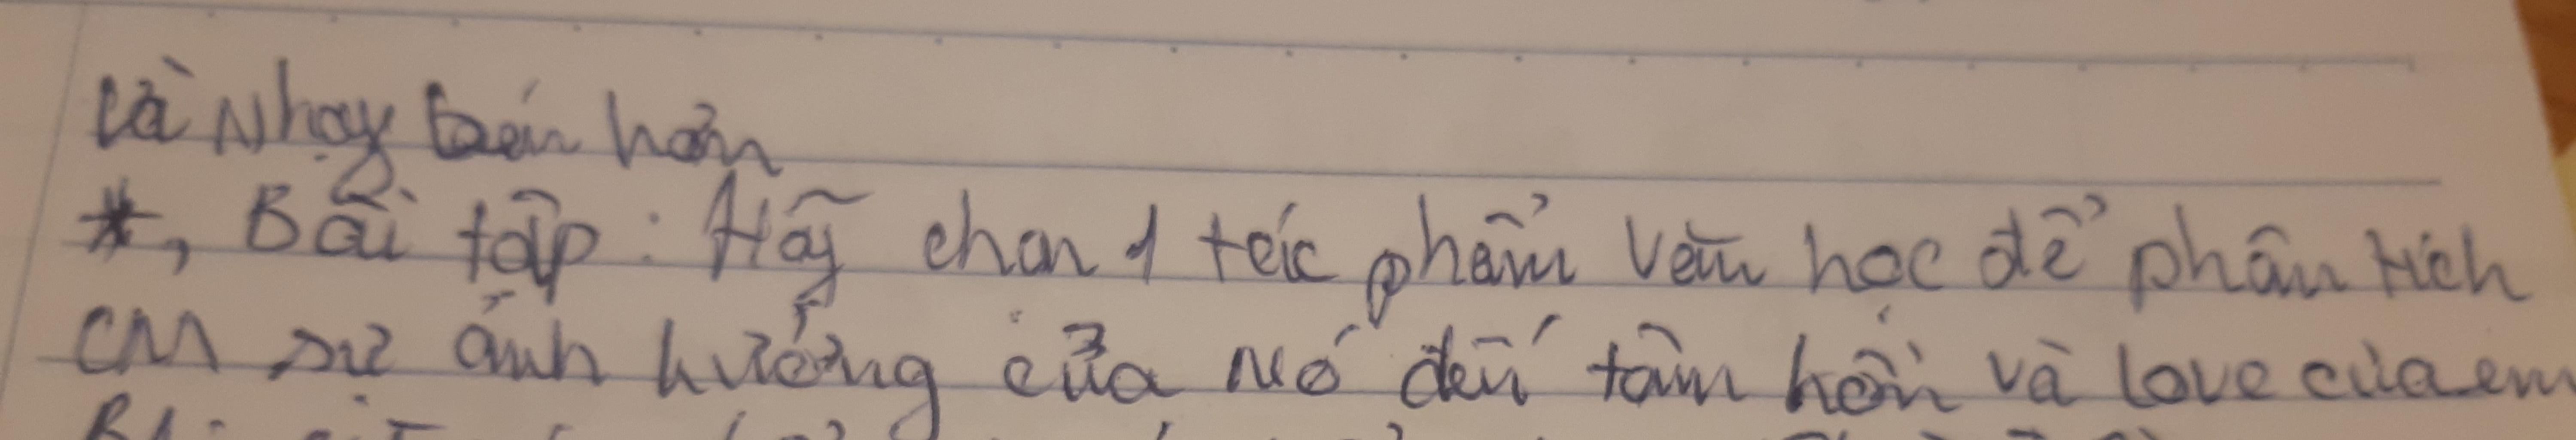 và nhạy bén hơn
*, Bài tập : Hãy chọn 1 tác phẩm văn học để phân tích
CM sự ảnh hưởng của nó đến tâm hồn và love của em